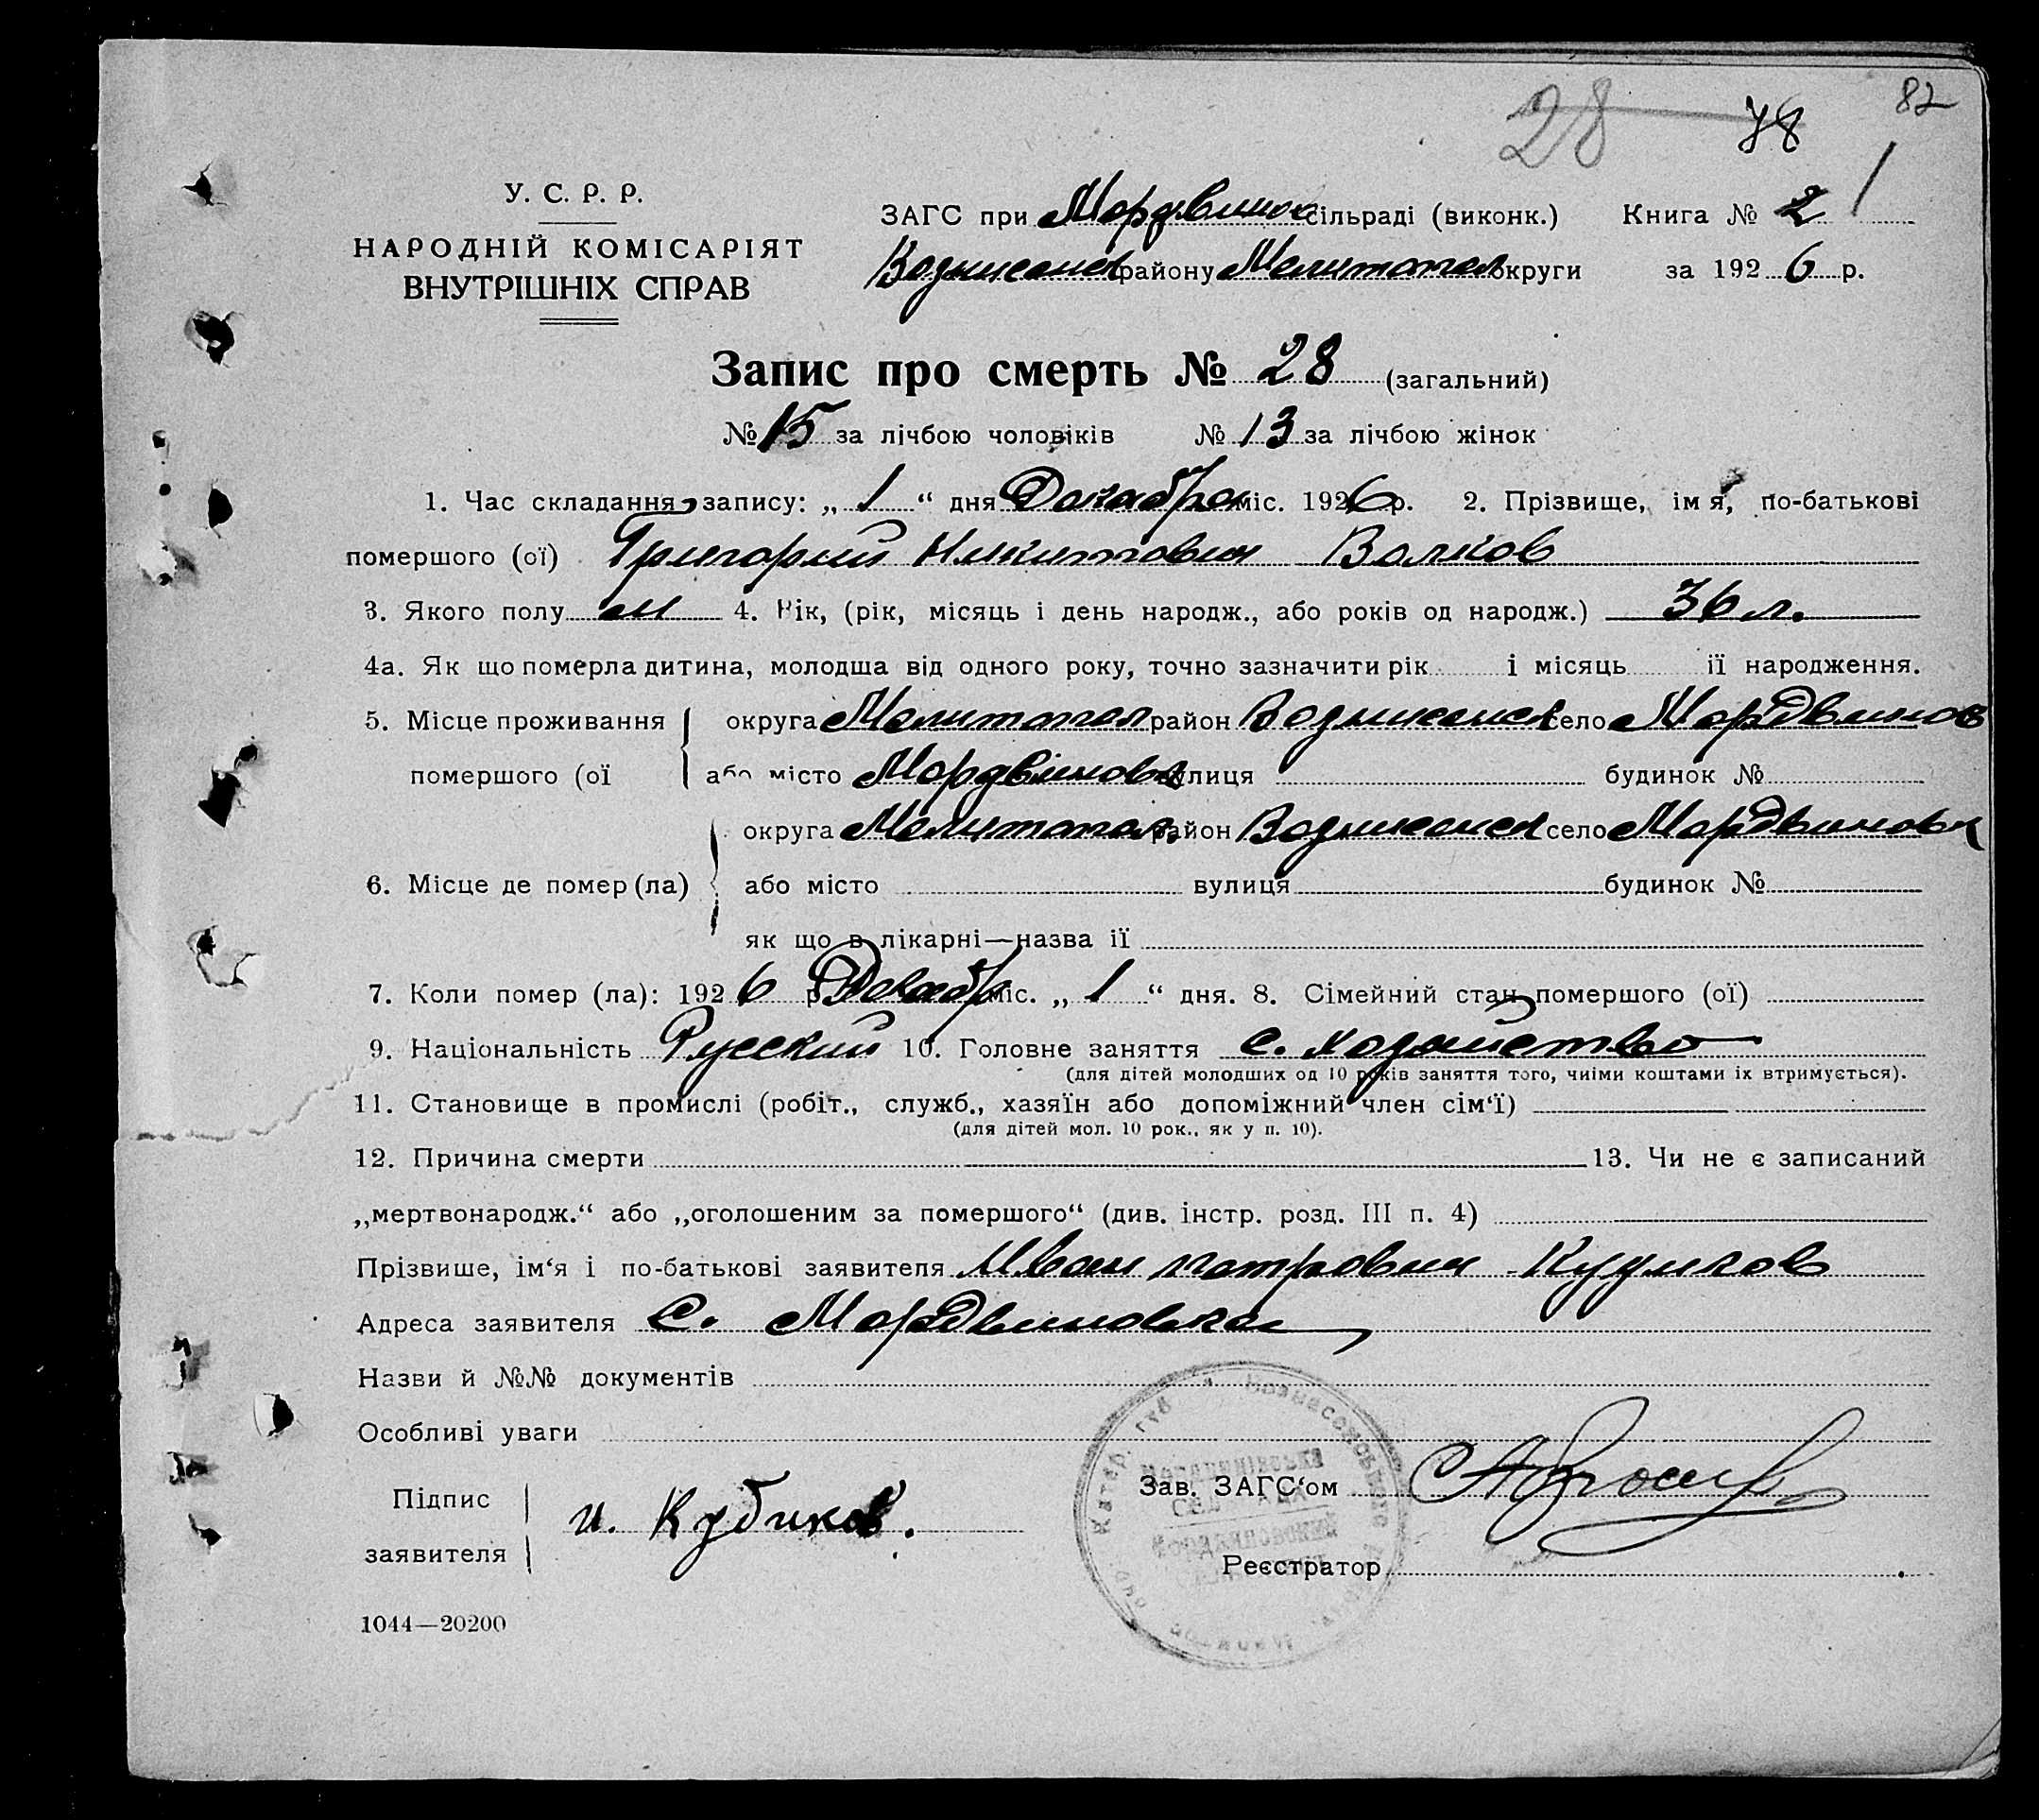 28 78 82
У. С. Р. Р.
НАРОДНІЙ КОМІСАРІЯТ
ВНУТРІШНІХ СПРАВ
ЗАГС при Мордвинов сільраді (виконк.) Книга № 2 1
району Мелитопол округи за 1926 р.
Запис про смерть № 28 (загальний)
№ 15 за лічбою чоловіків № 13 за лічбою жінок
1. Час складання запису: „ 1 “ дня Декабря міс. 1926 р. 2. Прізвище, імя, по-батькові
помершого (ої) Григорий Никитович Волков
3. Якого полу м 4. Рік, (рік, місяць і день народж., або років од народж.) 36 л.
4а. Як що померла дитина, молодша від одного року, точно зазначити рік і місяць її народження.
5. Місце проживання округа Мелитопол район село Мордвинов
помершого (ої або місто Мордвиновк вулиця будинок №
округа Мелитопол район село Мордвиновк
6. Місце де помер (ла) або місто вулиця будинок №
як що в лікарні—назва її
7. Коли помер (ла): 1926 р. Декабр міс. „ 1 “ дня. 8. Сімейний стан помершого (ої)
9. Національність Русский 10. Головне заняття с. хозяйство
(для дітей молодших од 10 років заняття того, чиїми коштами їх втримується).
11. Становище в промислі (робіт., служб., хазяїн або допоміжний член сім‘ї)
(для дітей мол. 10 рок., як у п. 10).
12. Причина смерти 13. Чи не є записаний
„мертвонародж.“ або „оголошеним за помершого“ (див. інстр. розд. III п. 4)
Прізвише, ім‘я і по-батькові заявителя Иван Петрович
Адреса заявителя С. Мордвиновка
Назви й №№ документів
Особливі уваги
Підпис
заявителя
и. Кубиков.
Зав. ЗАГС‘ом
Реєстратор
1044—20200